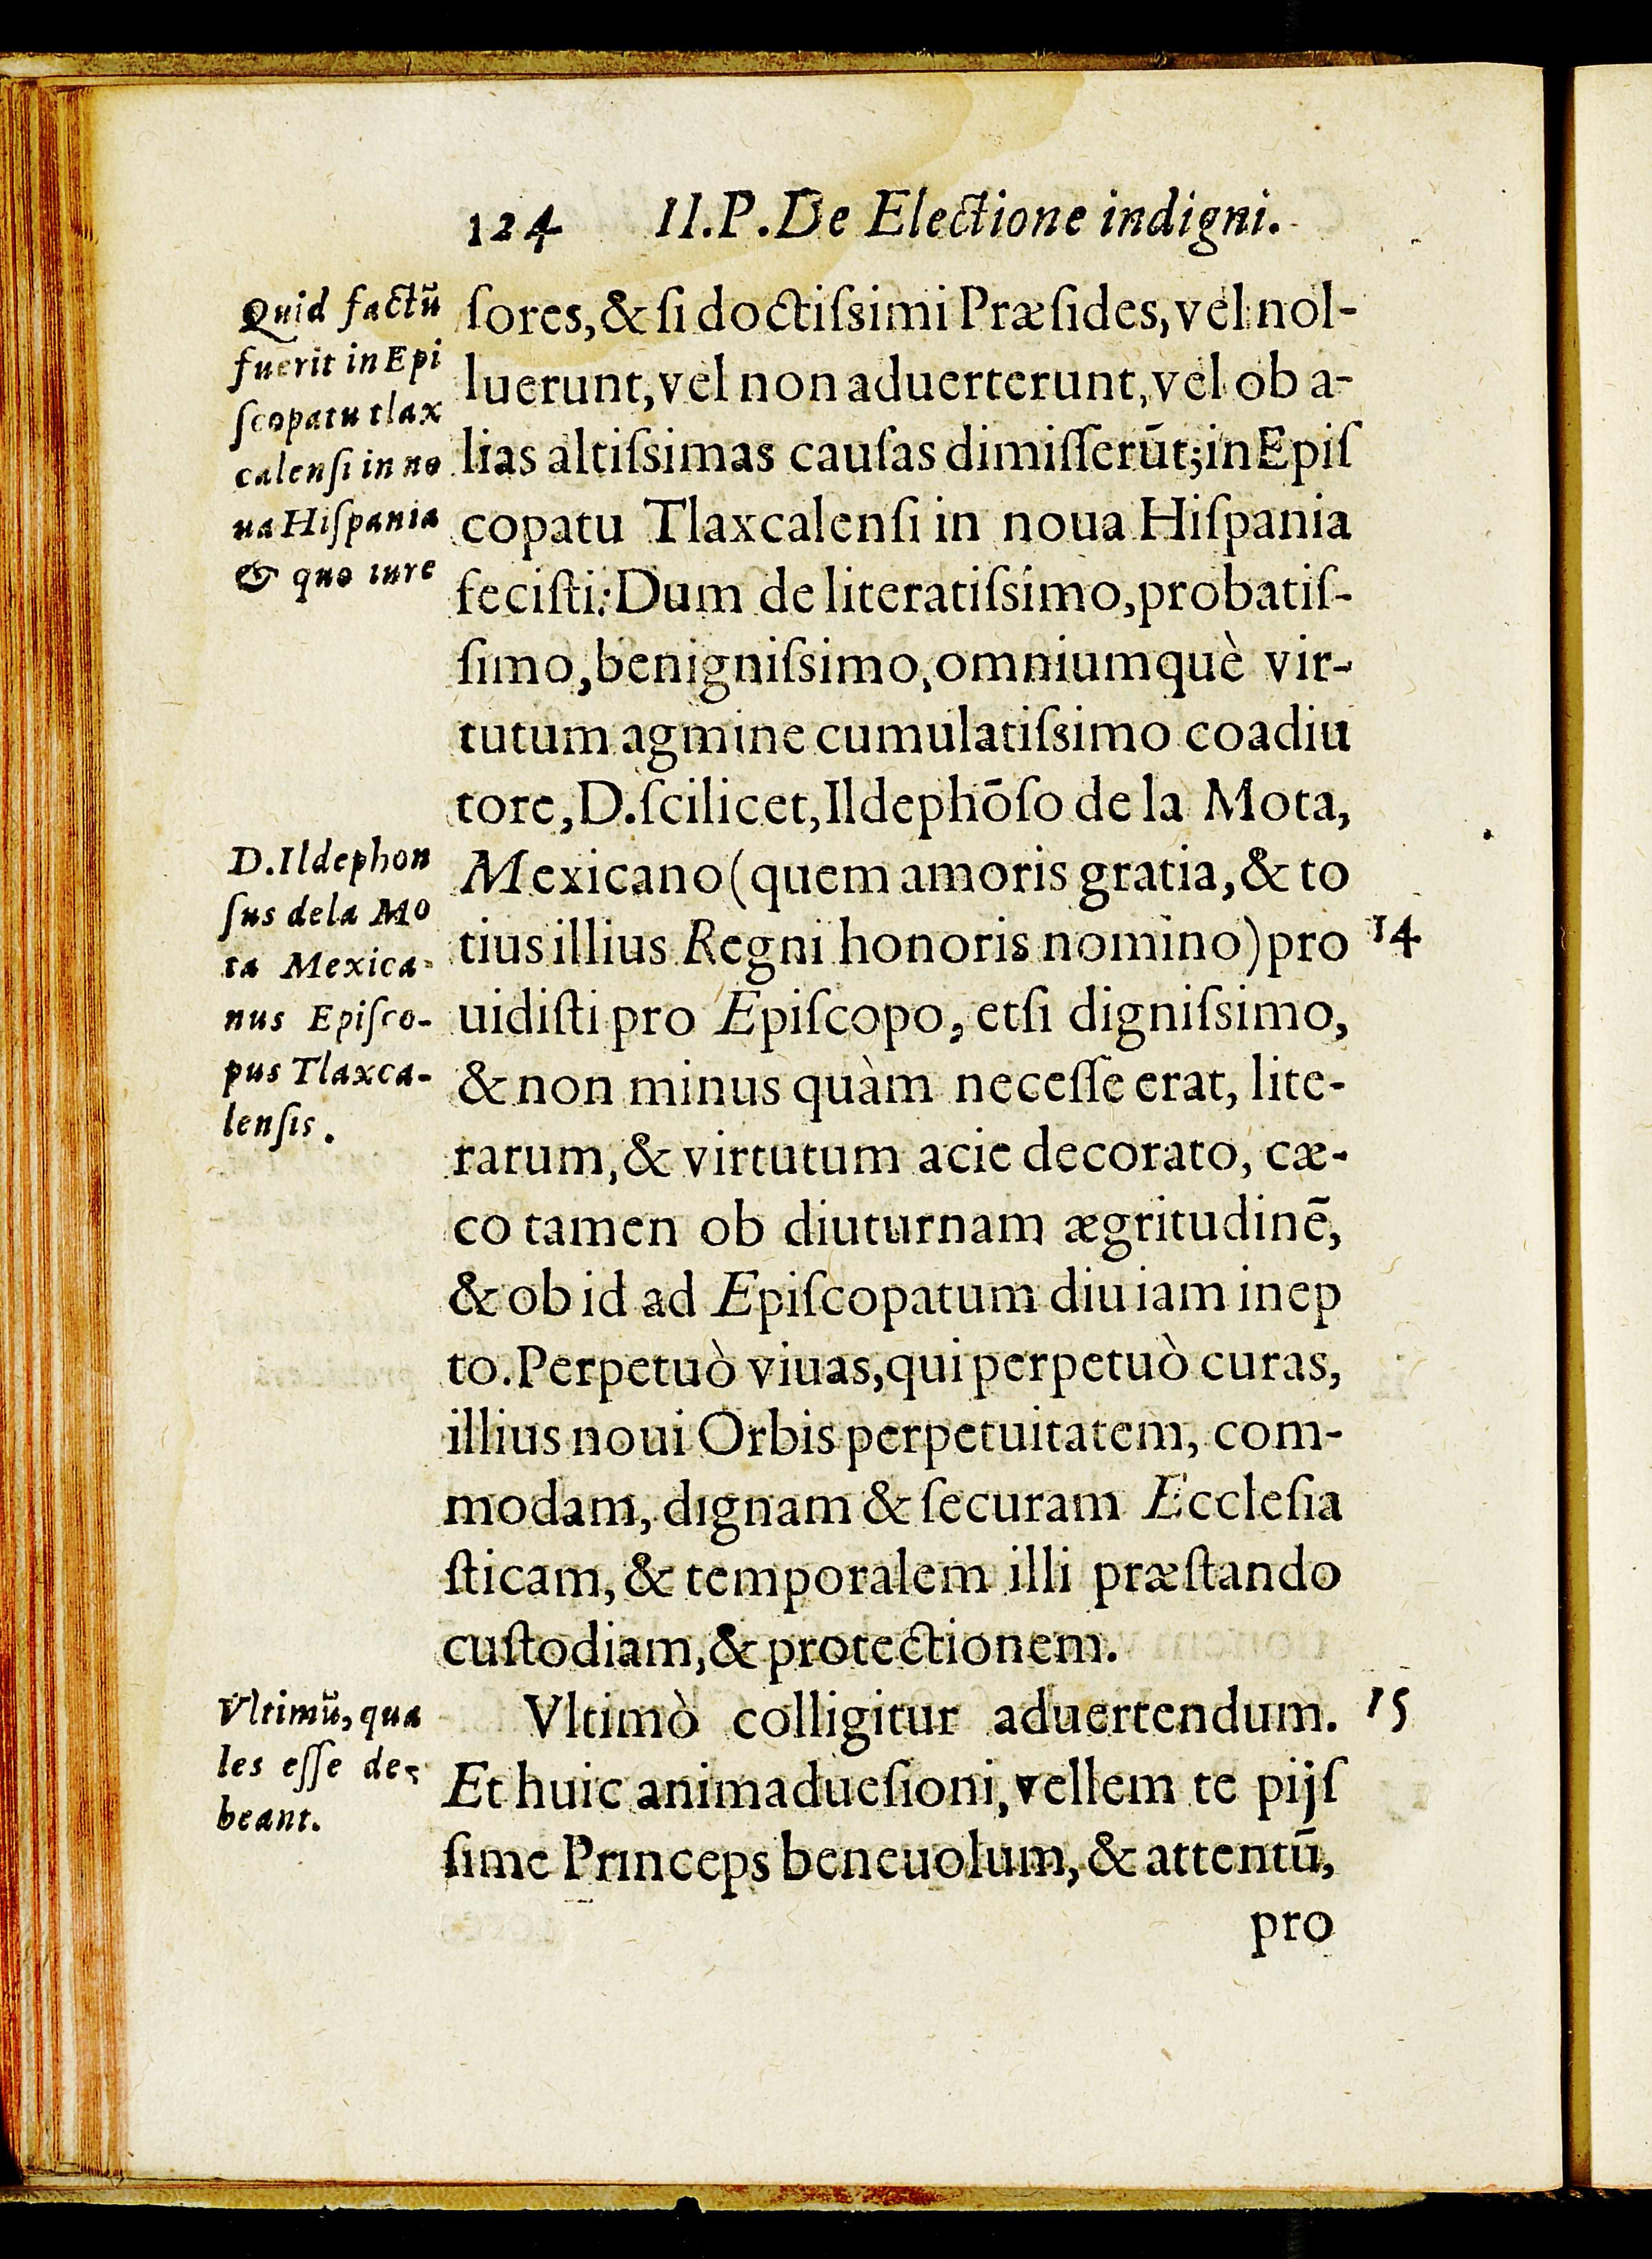 124 II.P.De Electione indigni.
Quid factũ
fuerit in Epi
ſcopatu tlax
calenſi in no
ua Hiſpania
& quo iure
ſores,& ſi doctiſsimi Præſides,vel nol-
luerunt,vel non aduerterunt,vel ob a-
lias altiſsimas cauſas dimiſſerūt;in Epiſ
copatu Tlaxcalenſi in noua Hiſpania
feciſti:Dum de literatiſsimo,probatiſ-
ſimo,benigniſsimo,omniumquè vir-
tutum agmine cumulatiſsimo coadiu
tore,D.ſcilicet,Ildephōſo de la Mota,
D.Ildephon
ſus dela Mo
ta Mexica-
nus Epiſco-
pus Tlaxca-
lenſis.
Mexicano(quem amoris gratia,& to
tius illius Regni honoris nomino)pro 14
uidiſti pro Epiſcopo, etſi digniſsimo,
& non minus quàm neceſſe erat, lite-
rarum,& virtutum acie decorato, cæ-
co tamen ob diuturnam ægritudinē,
& ob id ad Epiſcopatum diu iam inep
to.Perpetuò viuas,qui perpetuò curas,
illius noui Orbis perpetuitatem, com-
modam, dignam & ſecuram Eccleſia
ſticam, & temporalem illi præſtando
cuſtodiam,& protectionem.
Vltimũ, qua
les eſſe de-
beant.
Vltimò colligitur aduertendum. 15
Et huic animadueſioni,vellem te pijſ
ſime Princeps beneuolum,& attentū,
pro